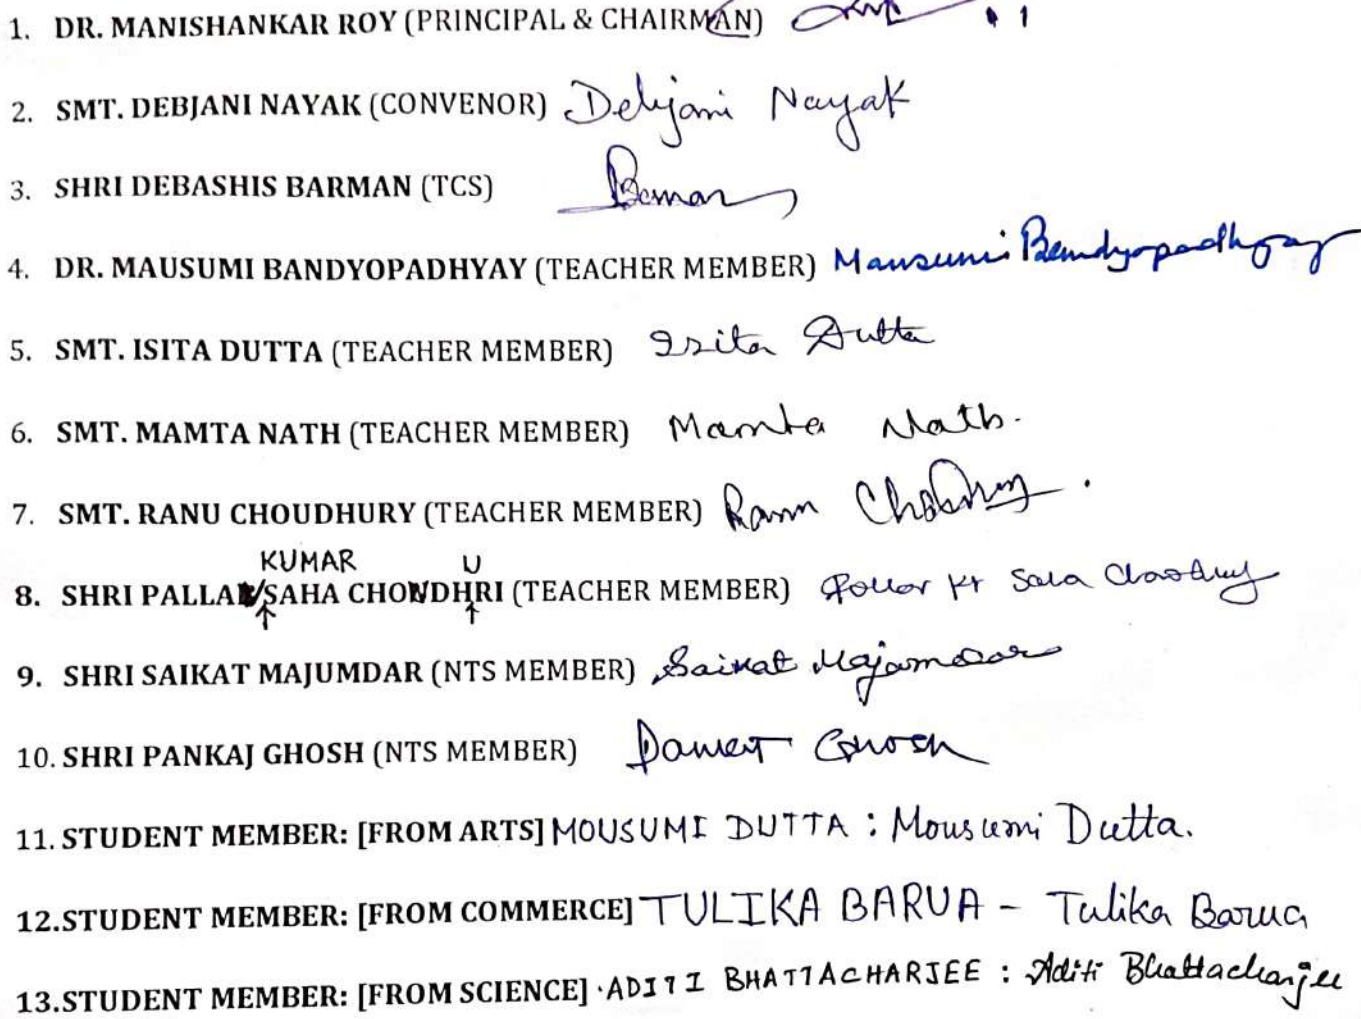 1. DR. MANISHANKAR ROY (PRINCIPAL & CHAIRMAN)
2. SMT. DEBJANI NAYAK (CONVENOR) Debjani Nayak
3. SHRI DEBASHIS BARMAN (TCS) Barman
4. DR. MAUSUMI BANDYOPADHYAY (TEACHER MEMBER) Mausumi Bandyopadhyay
5. SMT. ISITA DUTTA (TEACHER MEMBER) Isita Dutta
6. SMT. MAMTA NATH (TEACHER MEMBER) Mamta Nath.
7. SMT. RANU CHOUDHURY (TEACHER MEMBER) Ranu Choudhury.
KUMAR U
8. SHRI PALLAV SAHA CHOWDHRI (TEACHER MEMBER) Pallav Kr Saha Chowdhury
9. SHRI SAIKAT MAJUMDAR (NTS MEMBER) Saikat Majumdar
10. SHRI PANKAJ GHOSH (NTS MEMBER) Pankaj Ghosh
11. STUDENT MEMBER: [FROM ARTS] MOUSUMI DUTTA : Mousumi Dutta.
12. STUDENT MEMBER: [FROM COMMERCE] TULIKA BARUA - Tulika Barua
13. STUDENT MEMBER: [FROM SCIENCE] . ADITI BHATTACHARJEE : Aditi Bhattacharjee